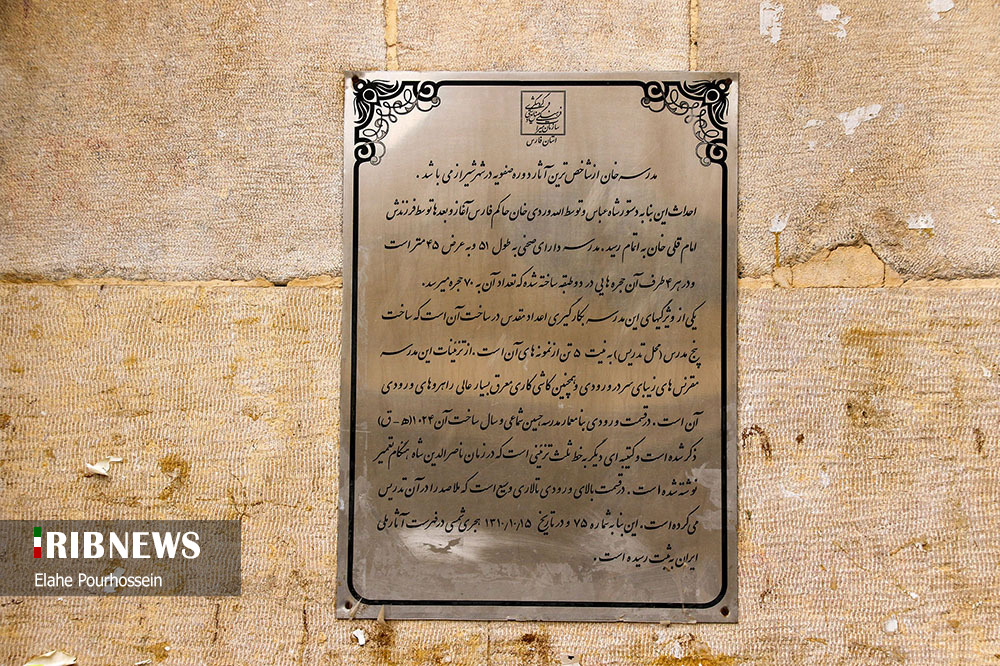 سازمان میراث فرهنگی و گردشگری
استان فارس
مدرسه خان از شاخص ترین آثار دوره صفویه در شهر شیراز می باشد .
احداث این بنا به دستور شاه عباس و توسط الله وردی خان حاکم فارس آغاز و بعدها توسط فرزندش
امام قلی خان به اتمام رسید . مدرسه دارای صحنی به طول ۵۱ و به عرض ۴۵ متر است
و در هر ۴ طرف آن حجره هایی در دو طبقه ساخته شده که تعداد آن به ۷۰ حجره میرسد .
یکی از ویژگیهای این مدرسه بکارگیری اعداد مقدس در ساخت آن است که ساخت
پنج مدرس (محل تدریس) به نیت ۵ تن از نمونه های آن است . از تزئینات این مدرسه
مقرنس های زیبای سردر ورودی و همچنین کاشی کاری معرق بسیار عالی راهروهای ورودی
آن است . در قسمت ورودی بنا معمار مدرسه حسین شماعی و سال ساخت آن ۱۰۲۴ (ه - ق)
ذکر شده است و کتیبه ای دیگر به خط ثلث تزئینی است که در زمان ناصرالدین شاه هنگام تعمیر
نوشته شده است . در قسمت بالای ورودی تالاری وسیع است که ملاصدرا در آن تدریس
می کرده است . این بنا به شماره ۷۵ و در تاریخ ۱۳۱۰/۱۰/۱۵ هجری شمسی در فهرست آثار ملی
ایران به ثبت رسیده است .
IRIBNEWS
Elahe Pourhossein